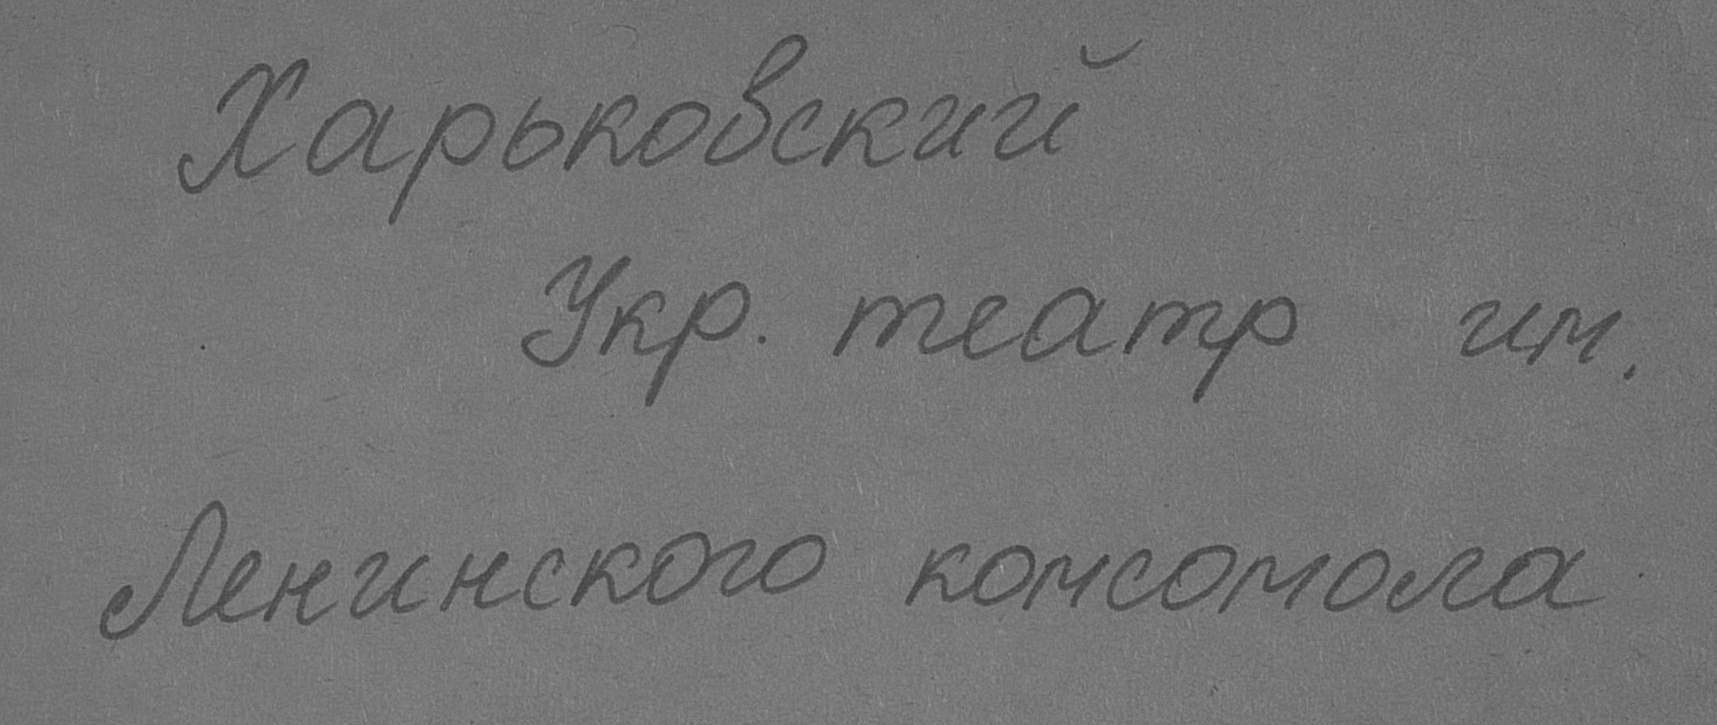 Харьковский
Укр. театр им.
Ленинского комсомола